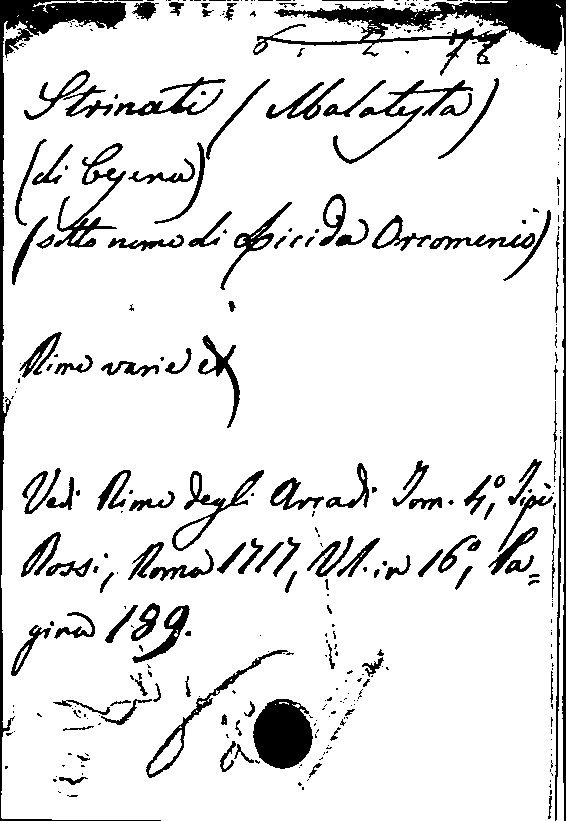 6. 2. 78
Strinati (Malatesta)
(di Cesena)
(sotto nome di Licida Orcomenio)
Rime varie
Vedi Rime degli Arcadi Tom. 4°, Tipi
Rossi, Roma 1717, Vl. in 16°, Pa=
gina 189.